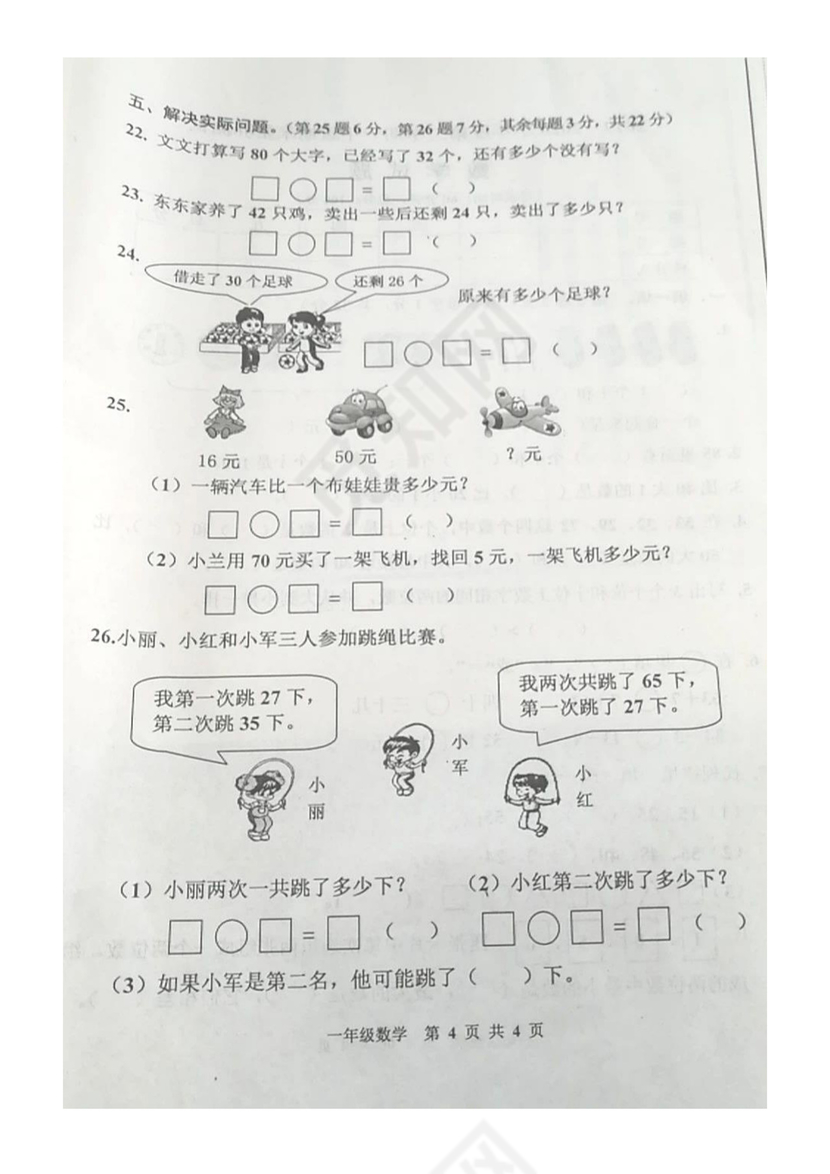 五、解决实际问题。(第25题6分，第26题7分，其余每题3分，共22分)
22. 文文打算写 80 个大字，已经写了 32 个，还有多少个没有写？
□○□=□（ ）
23. 东东家养了 42 只鸡，卖出一些后还剩 24 只，卖出了多少只？
□○□=□（ ）
24.
借走了 30 个足球
还剩 26 个
原来有多少个足球？
□○□=□（ ）
25.
16 元 50 元 ？元
（1）一辆汽车比一个布娃娃贵多少元？
□○□=□（ ）
（2）小兰用 70 元买了一架飞机，找回 5 元，一架飞机多少元？
□○□=□（ ）
26.小丽、小红和小军三人参加跳绳比赛。
我第一次跳 27 下，
第二次跳 35 下。
我两次共跳了 65 下，
第一次跳了 27 下。
小丽
小军
小红
（1）小丽两次一共跳了多少下？ （2）小红第二次跳了多少下？
□○□=□（ ） □○□=□（ ）
（3）如果小军是第二名，他可能跳了（ ）下。
一年级数学 第 4 页 共 4 页